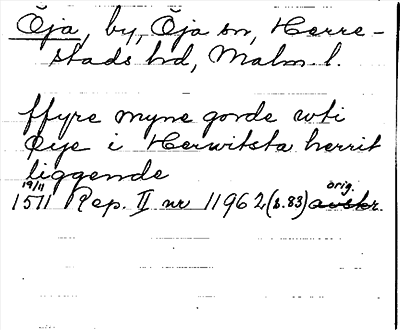 Öja, by, Öja sn, Herre-
stads hd, Malm. l.
ffyre myne gorde vti
Øye i Herwitsta herrit
liggende
19/11 orig.
1511 Rep. II nr 11962 (s. 83) avskr.